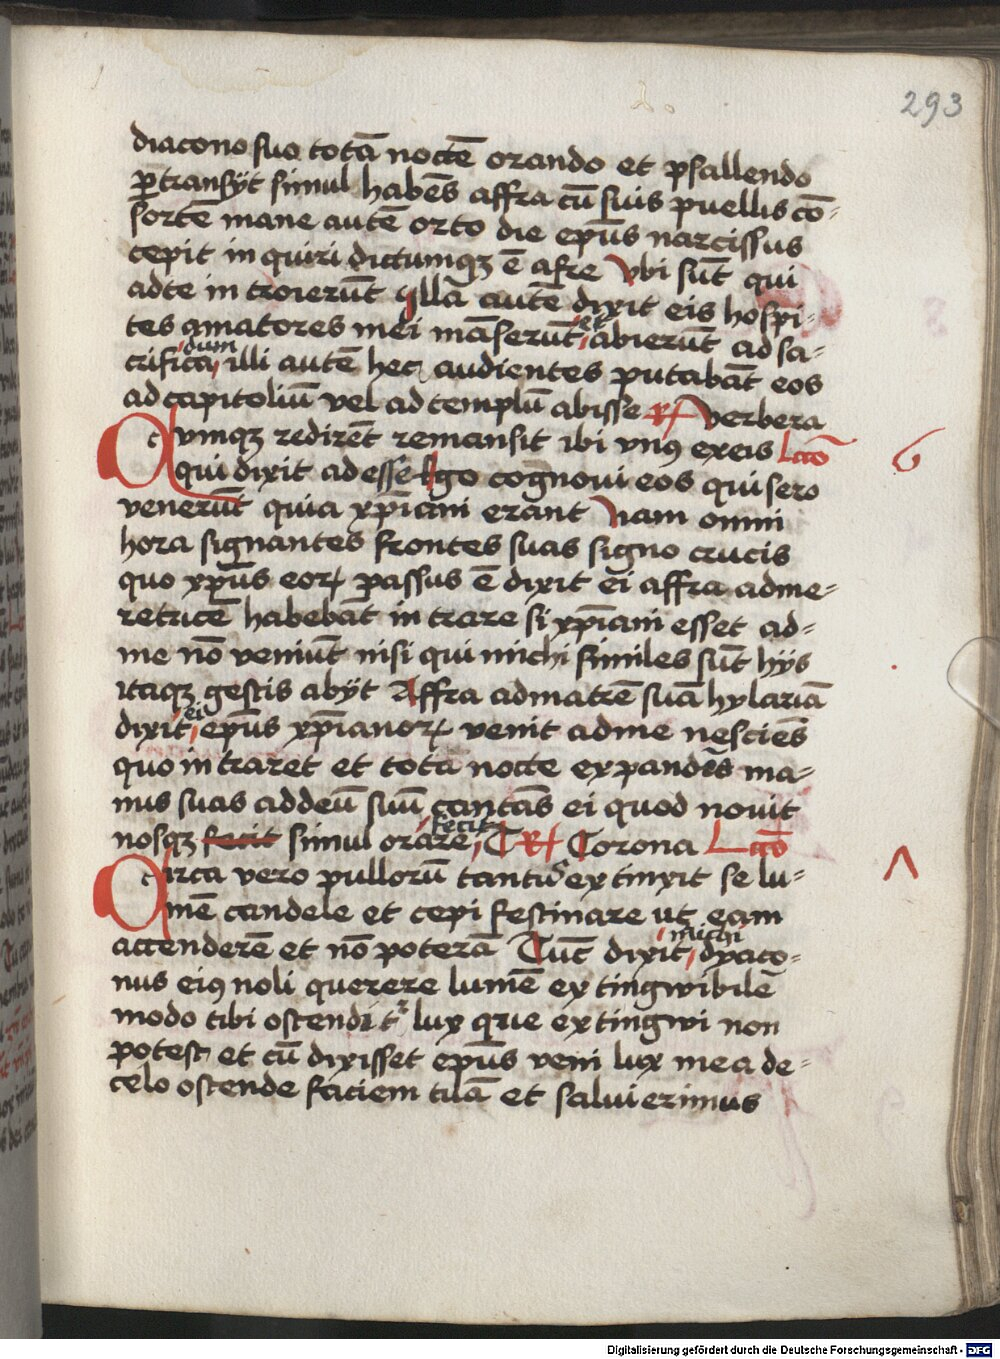 293
diacono suo totā noctē orando et psallendo
p̄transÿt simul habēs affra cū suis puellis cō-
sortē mane autē orto die ep̄us narcissus
cepit inquiri dictumqꝫ ē afre vbi sūt qui
adte introierūt Illa autē dixit eis hospi-
tes amatores mei māserūt et abierūt ad sa-
crifica dum illi autē hec audientes putabāt eos
ad capitoliū vel ad templū abisse R̸ verbera
Cvmqꝫ redirēt remansit ibi vnꝰ exeis Lcō 6
qui dixit ad esse Ego cog̅noui eos qui sero
venerūt quia xp̄iani erant Nam omni
hora signantes frontes suas signo crucis
quo xp̄us eoꝝ passus ē dixit ei affra adme-
retricē habebāt intrare si xp̄iani esset ad-
me nō veniūt nisi qui michi similes sūt hÿs
itaqꝫ gestis abÿt Affra ad matrē suā hylariā
dixit ei ep̄us xp̄ianoꝝ venit ad me nesciēs
quo intraret et tota nocte expandēs ma-
nus suas ad deū suū cantās ei quod nouit
nosqꝫ fecit simul orare fecit R̸ Corona Lcō
Circa vero pullorū tantū extinxit se lu- Λ
mē candele et cepi festinare ut eam
accenderē et nō poterā Tūc dixit michi dyaco-
nus eiꝰ noli querere lumē extingwibilē
modo tibi ostendit᷑ lux que extingwi non
potest et cū dixisset ep̄us veni lux mea de-
celo ostende faciem tuā et salui erimus
Digitalisierung gefördert durch die Deutsche Forschungsgemeinschaft - DFG